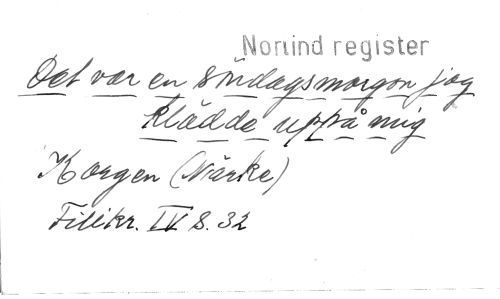 Norlind register
Det var en söndagsmorgon jag
klädde uppå mig
Korgen (Närke)
Filikr. IV S. 32